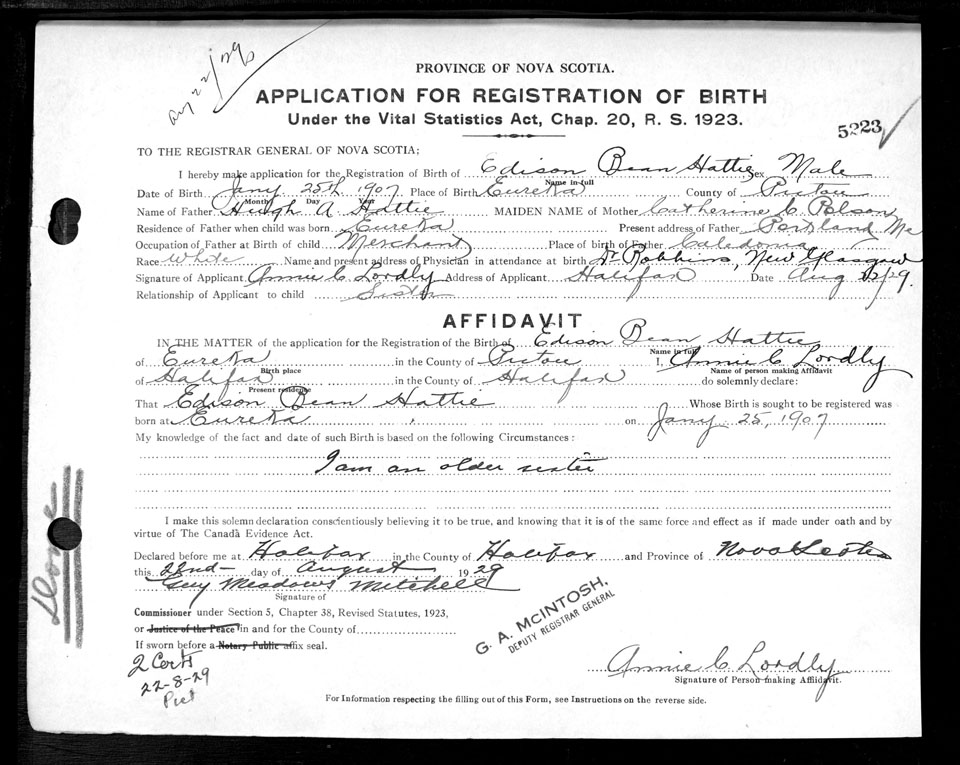 Aug 22/29
PROVINCE OF NOVA SCOTIA.
APPLICATION FOR REGISTRATION OF BIRTH
Under the Vital Statistics Act, Chap. 20, R. S. 1923.
5223
TO THE REGISTRAR GENERAL OF NOVA SCOTIA;
I hereby make application for the Registration of Birth of Edison Bean Hattie Sex Male
Name in full
Date of Birth Jany 25th 1907 Place of Birth Eureka County of Pictou
Month Day Year
Name of Father Hugh A Hattie MAIDEN NAME of Mother Catherine C Polson
Residence of Father when child was born Eureka Present address of Father Portland Me
Occupation of Father at Birth of child Merchant Place of birth of Father Caledonia
Race White Name and present address of Physician in attendance at birth Dr Robbins, New Glasgow
Signature of Applicant Annie C Lordly Address of Applicant Halifax Date Aug 22/29.
Relationship of Applicant to child Sister
AFFIDAVIT
IN THE MATTER of the application for the Registration of the Birth of Edison Bean Hattie
Name in full
of Eureka in the County of Pictou I, Annie C Lordly
Birth place Name of person making Affidavit
of Halifax in the County of Halifax do solemnly declare:
Present residence
That Edison Bean Hattie Whose Birth is sought to be registered was
born at Eureka on Jany 25, 1907
My knowledge of the fact and date of such Birth is based on the following Circumstances:
I am an older sister
I make this solemn declaration conscientiously believing it to be true, and knowing that it is of the same force and effect as if made under oath and by
virtue of The Canada Evidence Act.
Declared before me at Halifax in the County of Halifax and Province of Nova Scotia
this 22nd day of August 1929
Guy Meadows Mitchell
Signature of
Commissioner under Section 5, Chapter 38, Revised Statutes, 1923,
or Justice of the Peace in and for the County of
If sworn before a Notary Public affix seal.
G. A. McINTOSH,
DEPUTY REGISTRAR GENERAL
2 Certs
22-8-29
Pict
Annie C Lordly
Signature of Person making Affidavit.
For Information respecting the filling out of this Form, see Instructions on the reverse side.
Done